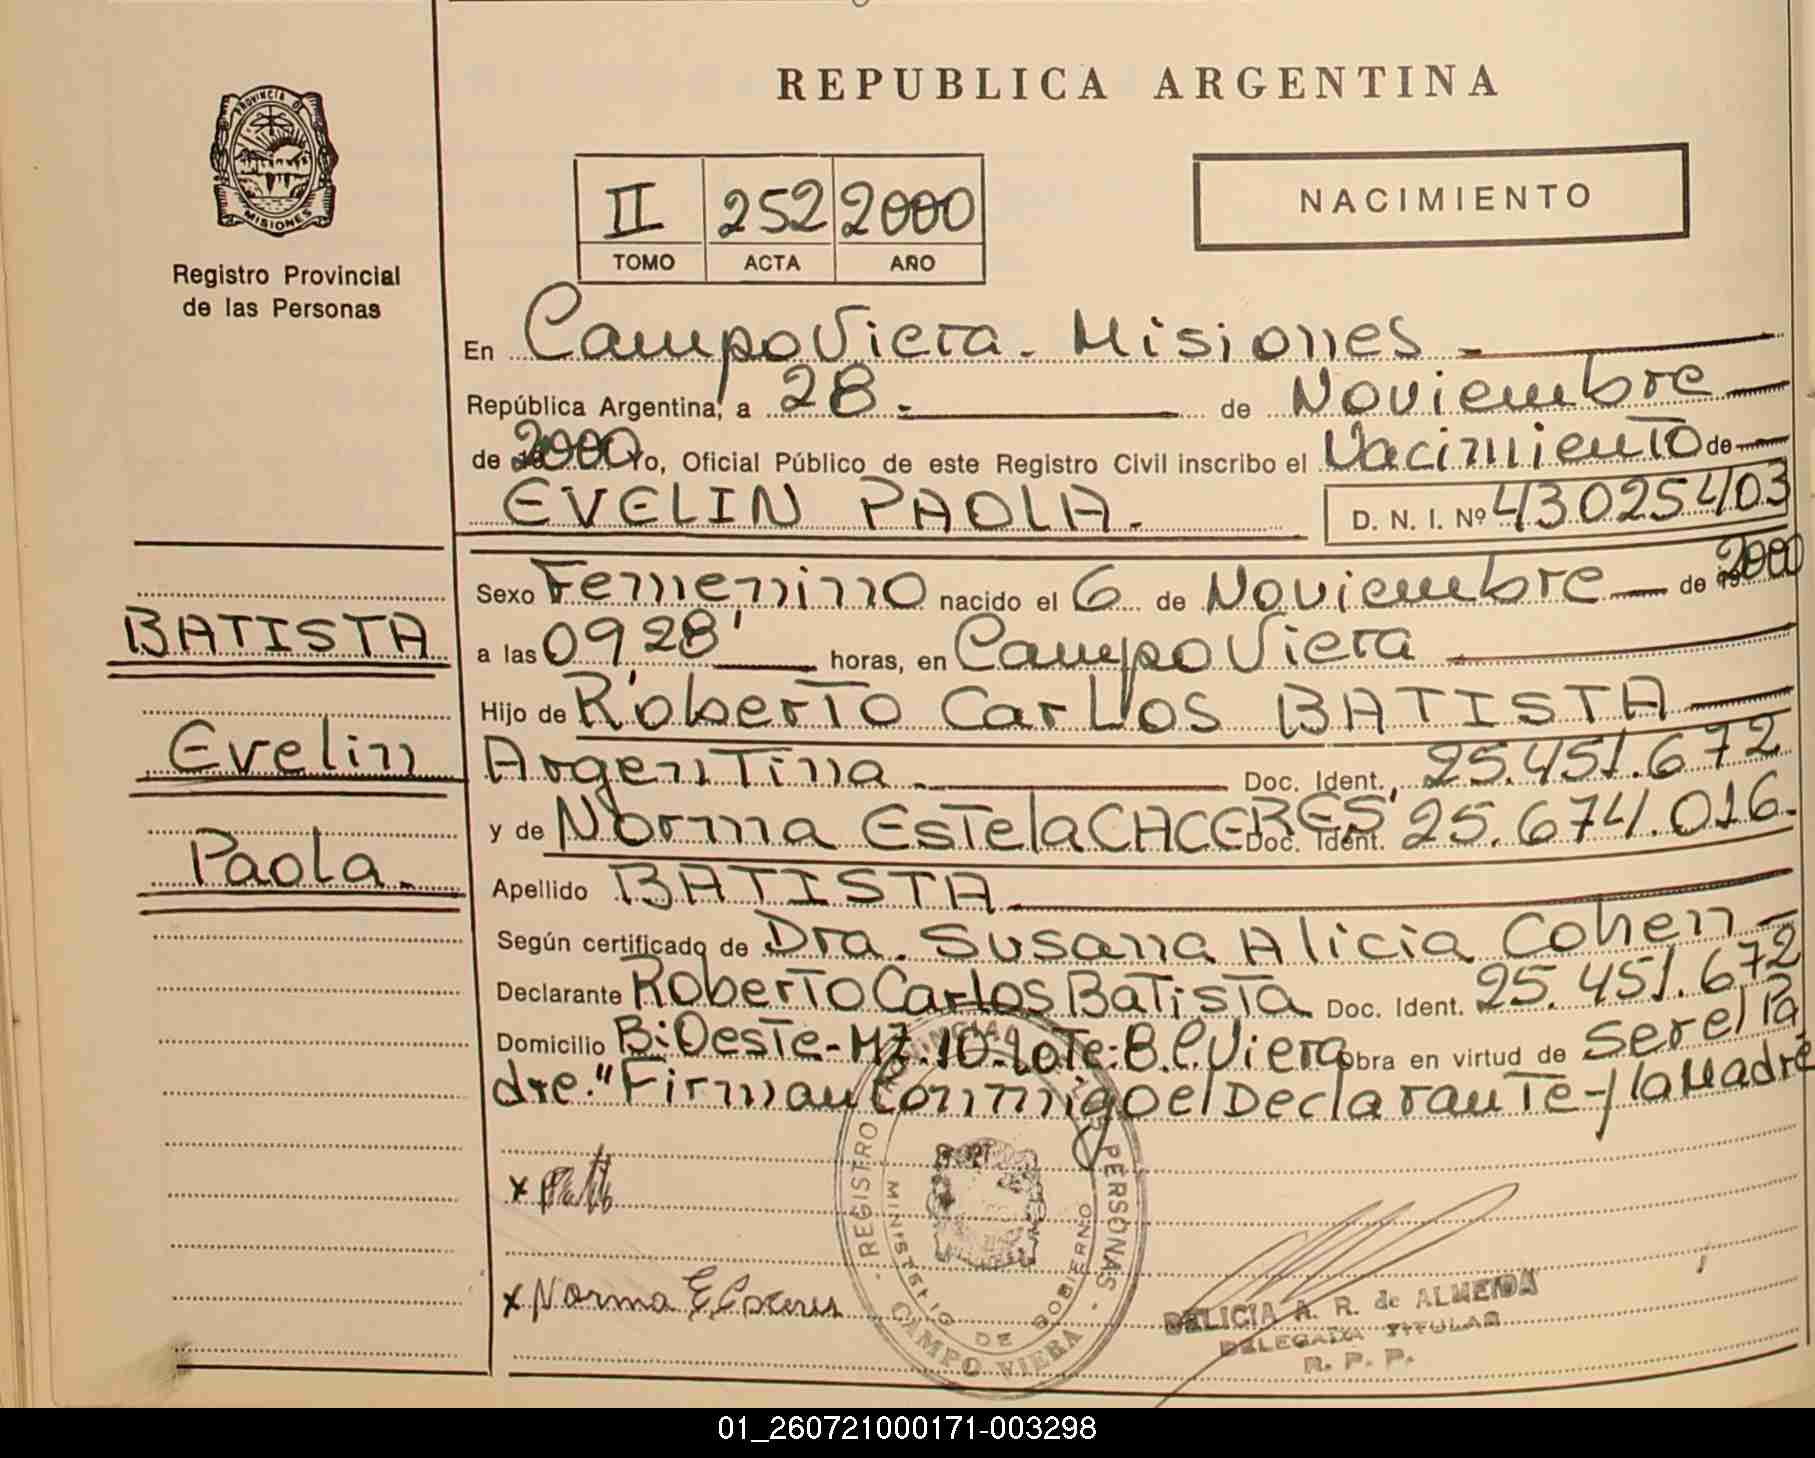 REPUBLICA ARGENTINA
PROVINCIA DE
MISIONES
Registro Provincial
de las Personas
II 252 2000
TOMO ACTA AÑO
NACIMIENTO
En Campo Viera. Misiones
República Argentina, a 28 de Noviembre
de 2000 Yo, Oficial Público de este Registro Civil inscribo el Nacimiento de
EVELIN PAOLA. D. N. I. Nº 43025403
BATISTA
Evelin
Paola.
Sexo Femenino nacido el 6 de Noviembre de 19 2000
a las 0928' horas, en Campo Viera
Hijo de Roberto Carlos BATISTA
Argentina. Doc. Ident. 25.451.672
y de Norma Estela CACERES Doc. Ident. 25.674.016.
Apellido BATISTA
Según certificado de Dra. Susana Alicia Cohen
Declarante Roberto Carlos Batista Doc. Ident. 25.451.672
Domicilio B: Oeste-Mz.10-Lote:8.C.Viera Obra en virtud de ser el Pa
dre." Firman Conmigo el Declarante-y la Madre
x
x Norma E Caceres
REGISTRO PROVINCIAL DE LAS PERSONAS
MINISTERIO DE GOBIERNO
CAMPO VIERA
DELICIA A. R. de ALMEIDA
DELEGADA TITULAR
R. P. P.
01_260721000171-003298